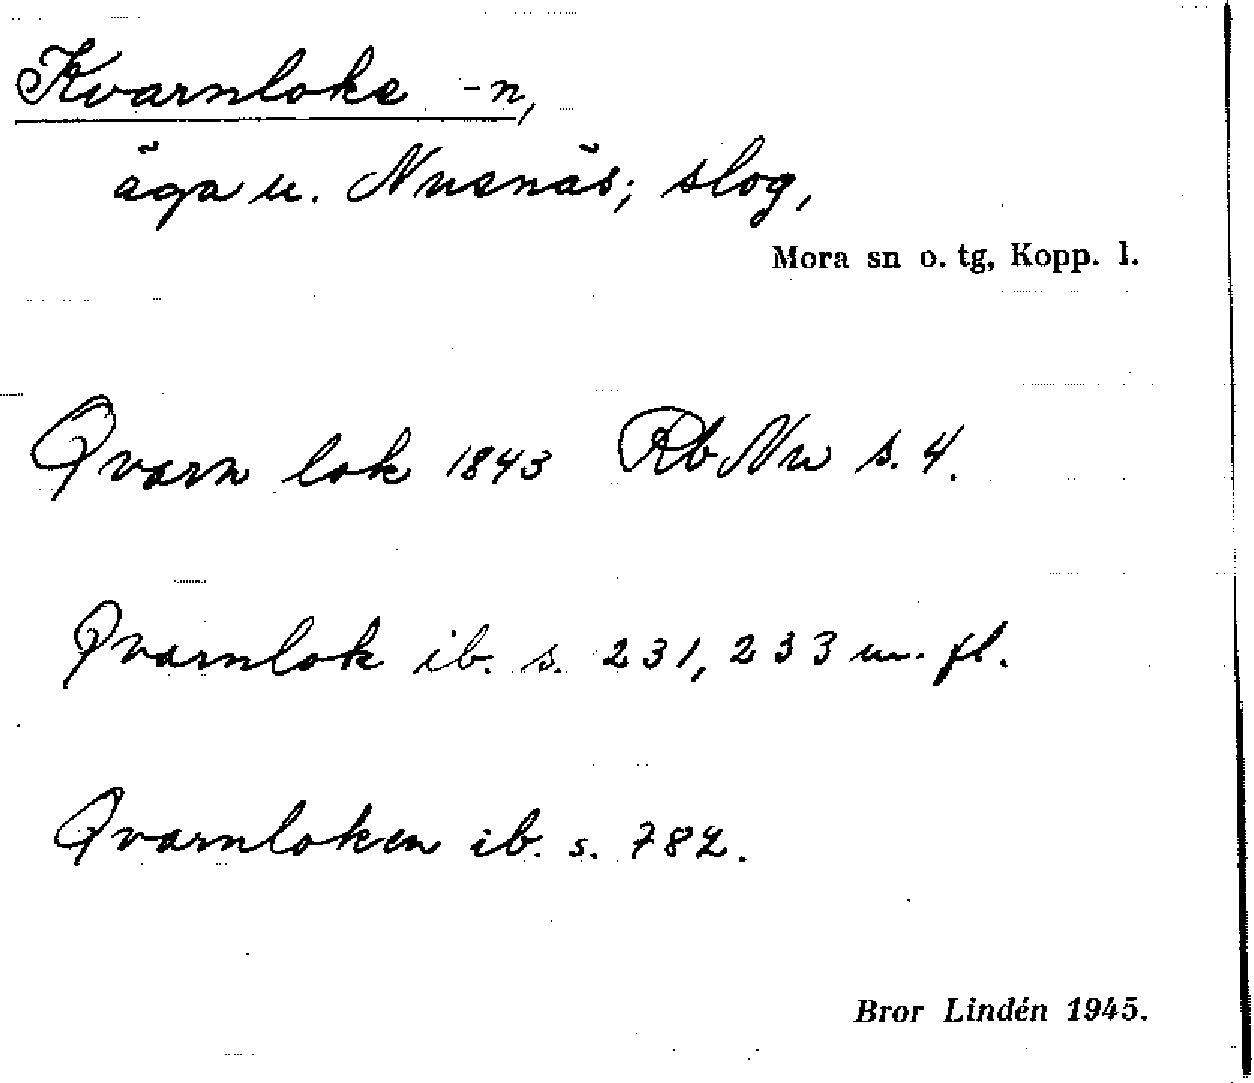 Kvarnloke -n,
äga u. Nusnäs; slog,
Mora sn o. tg, Kopp. l.
Qvarn lok 1843 Rb Nu s. 4.
Qvarnlok ib. s. 231, 233 m. fl.
Qvarnloken ib. s. 782.
Bror Lindén 1945.